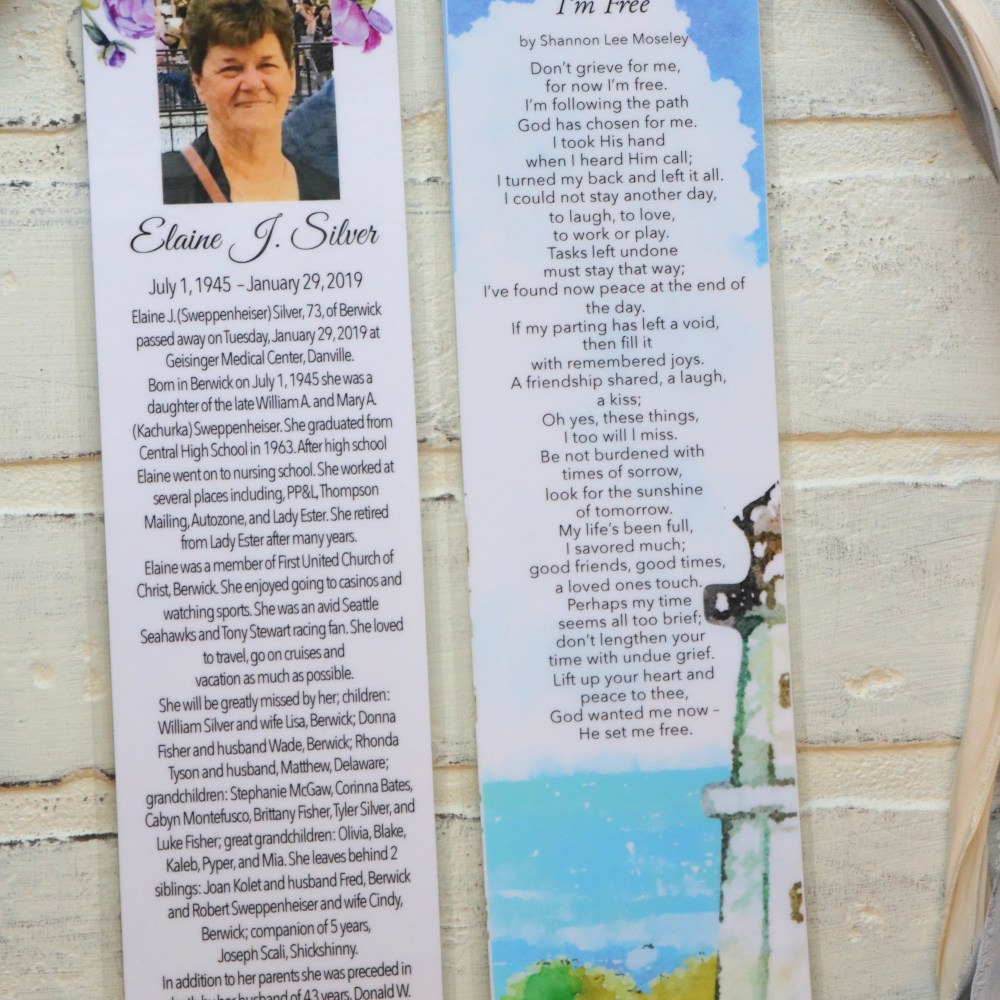 Elaine J. Silver
July 1, 1945 – January 29, 2019
Elaine J. (Sweppenheiser) Silver, 73, of Berwick
passed away on Tuesday, January 29, 2019 at
Geisinger Medical Center, Danville.
Born in Berwick on July 1, 1945 she was a
daughter of the late William A. and Mary A.
(Kachurka) Sweppenheiser. She graduated from
Central High School in 1963. After high school
Elaine went on to nursing school. She worked at
several places including, PP&L, Thompson
Mailing, Autozone, and Lady Ester. She retired
from Lady Ester after many years.
Elaine was a member of First United Church of
Christ, Berwick. She enjoyed going to casinos and
watching sports. She was an avid Seattle
Seahawks and Tony Stewart racing fan. She loved
to travel, go on cruises and
vacation as much as possible.
She will be greatly missed by her; children:
William Silver and wife Lisa, Berwick; Donna
Fisher and husband Wade, Berwick; Rhonda
Tyson and husband, Matthew, Delaware;
grandchildren: Stephanie McGaw, Corinna Bates,
Cabyn Montefusco, Brittany Fisher, Tyler Silver, and
Luke Fisher; great grandchildren: Olivia, Blake,
Kaleb, Pyper, and Mia. She leaves behind 2
siblings: Joan Kolet and husband Fred, Berwick
and Robert Sweppenheiser and wife Cindy,
Berwick; companion of 5 years,
Joseph Scali, Shickshinny.
In addition to her parents she was preceded in
death by her husband of 43 years, Donald W.
I'm Free
by Shannon Lee Moseley
Don't grieve for me,
for now I'm free.
I'm following the path
God has chosen for me.
I took His hand
when I heard Him call;
I turned my back and left it all.
I could not stay another day,
to laugh, to love,
to work or play.
Tasks left undone
must stay that way;
I've found now peace at the end of
the day.
If my parting has left a void,
then fill it
with remembered joys.
A friendship shared, a laugh,
a kiss;
Oh yes, these things,
I too will I miss.
Be not burdened with
times of sorrow,
look for the sunshine
of tomorrow.
My life's been full,
I savored much;
good friends, good times,
a loved ones touch.
Perhaps my time
seems all too brief;
don't lengthen your
time with undue grief.
Lift up your heart and
peace to thee,
God wanted me now –
He set me free.